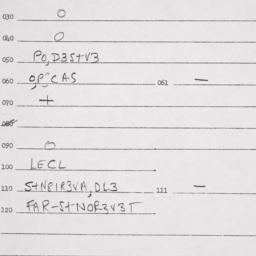 030 O
040 O
050 PO,D3S+V3
060 O,P,CAS 061 —
070 +
090 O
100 LECL
110 S+NP1R3VA,DL3 111 —
120 FAR-S+NOR3V3T